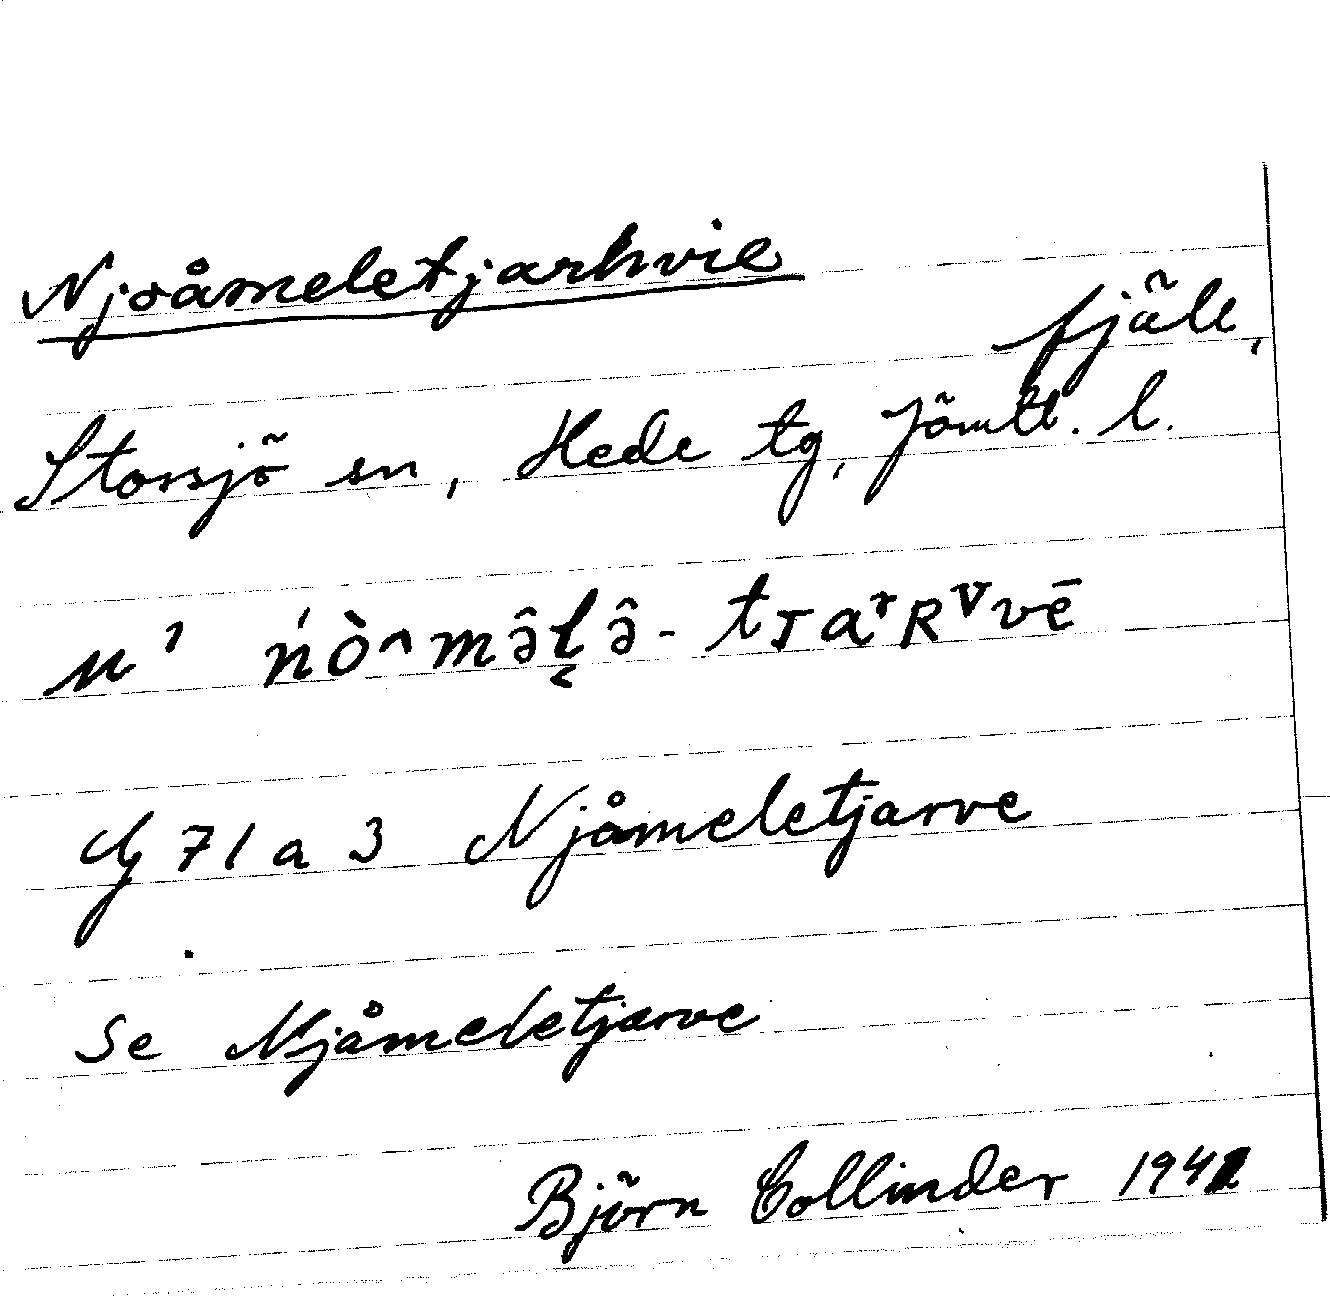 Njoåmeletjarhvie
fjäll,
Storsjö sn, Hede tg, Jämtl. l.
ńò̂mə̂l̬ə̂-tᴊaʳʀᵛvē
71 a 3 Njåmeletjarve
Se Njåmeletjarve
Björn Collinder 1942